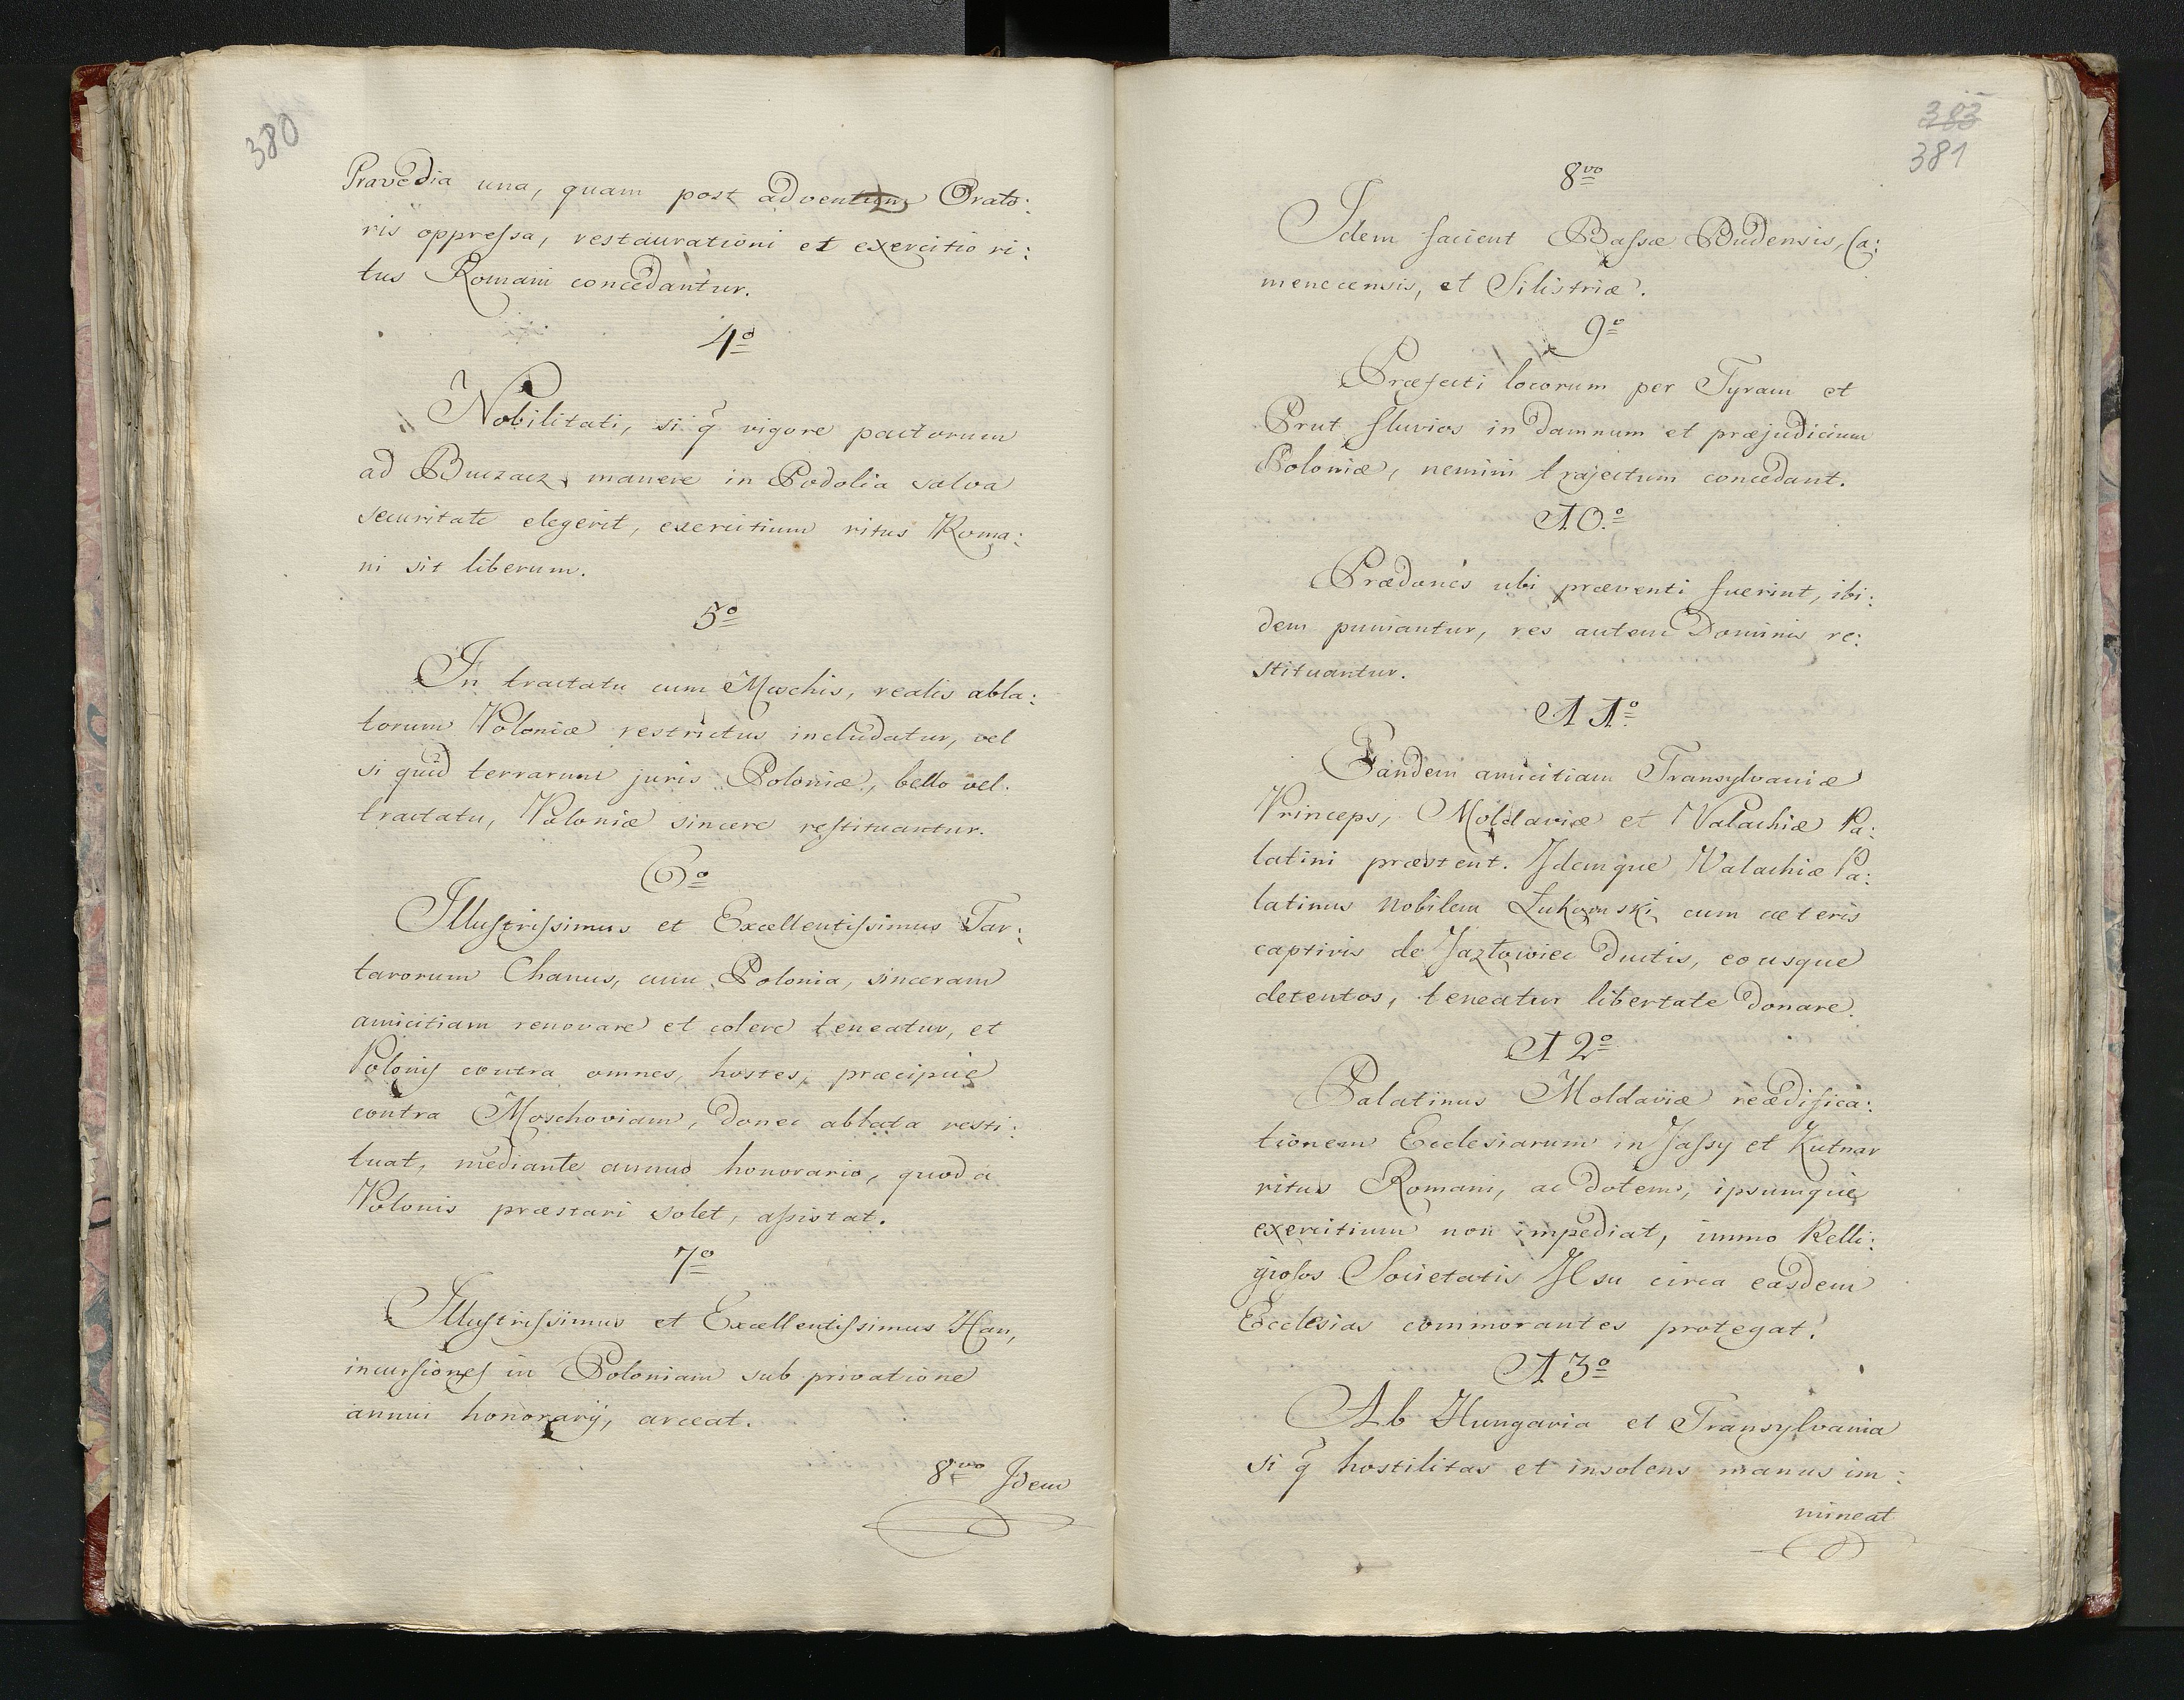 380
Pravedia una, quam post adventum Orato:
ris oppressa, restaurationi et exercitio ri:
tus Romani concedantur.
4º
Nobilitati, si q̃ vigore pactorum
ad Buczacz manere in Podolia salva
securitate elegerit, exercitium ritus Roma:
ni sit liberum.
5º
In tractatu cum Moschis, realis abla:
torum Poloniæ restrictus includatur, vel
si quid terrarum juris Poloniæ, bello vel
tractatu, Poloniæ sincere restituantur.
6º
Illustrissimus et Excellentissimus Tar:
tarorum Chanus, cum Polonia, sinceram
amicitiam renovare et colere teneatur, et
Polonis contra omnes, hostes, præcipue
contra Moschoviam, donec ablata resti:
tuat, mediante annuo honorario, quod a
Polonis præstari solet, assistat.
7º
Illustrissimus et Excellentissimus Han,
incursiones in Poloniam sub privatione
annui honorarij, arceat.
8vo Idem
383
381
8vo
Idem facient Bassæ Budensis, Ca:
menecensis, et Silistriæ.
9º
Præfecti locorum per Tyram et
Prut fluvios in damnum et præjudicium
Poloniæ, nemini trajectum concedant.
10º
Prædones ubi præventi fuerint, ibi:
dem puniantur, res autem Dominis re:
stituantur.
11º
Eandem amicitiam Transylvaniæ
Princeps, Moldaviæ et Valachiæ Pa:
latini præstent. Idemque Valachiæ Pa:
latinus Nobilem Łukomski cum cæteris
captivis de Jazłowiec ductis, eousque
detentos, teneatur libertate donare.
12º
Palatinus Moldaviæ reædifica:
tionem Ecclesiarum in Jassy et Kutnar
ritus Romani, ac dotem, ipsumque
exercitium non impediat, immo Relli:
giosos Societatis JEsu circa easdem
Ecclesias commorantes protegat.
13º
Ab Hungaria et Transylvania
si q̃ hostilitas et insolens manus im:
mineat